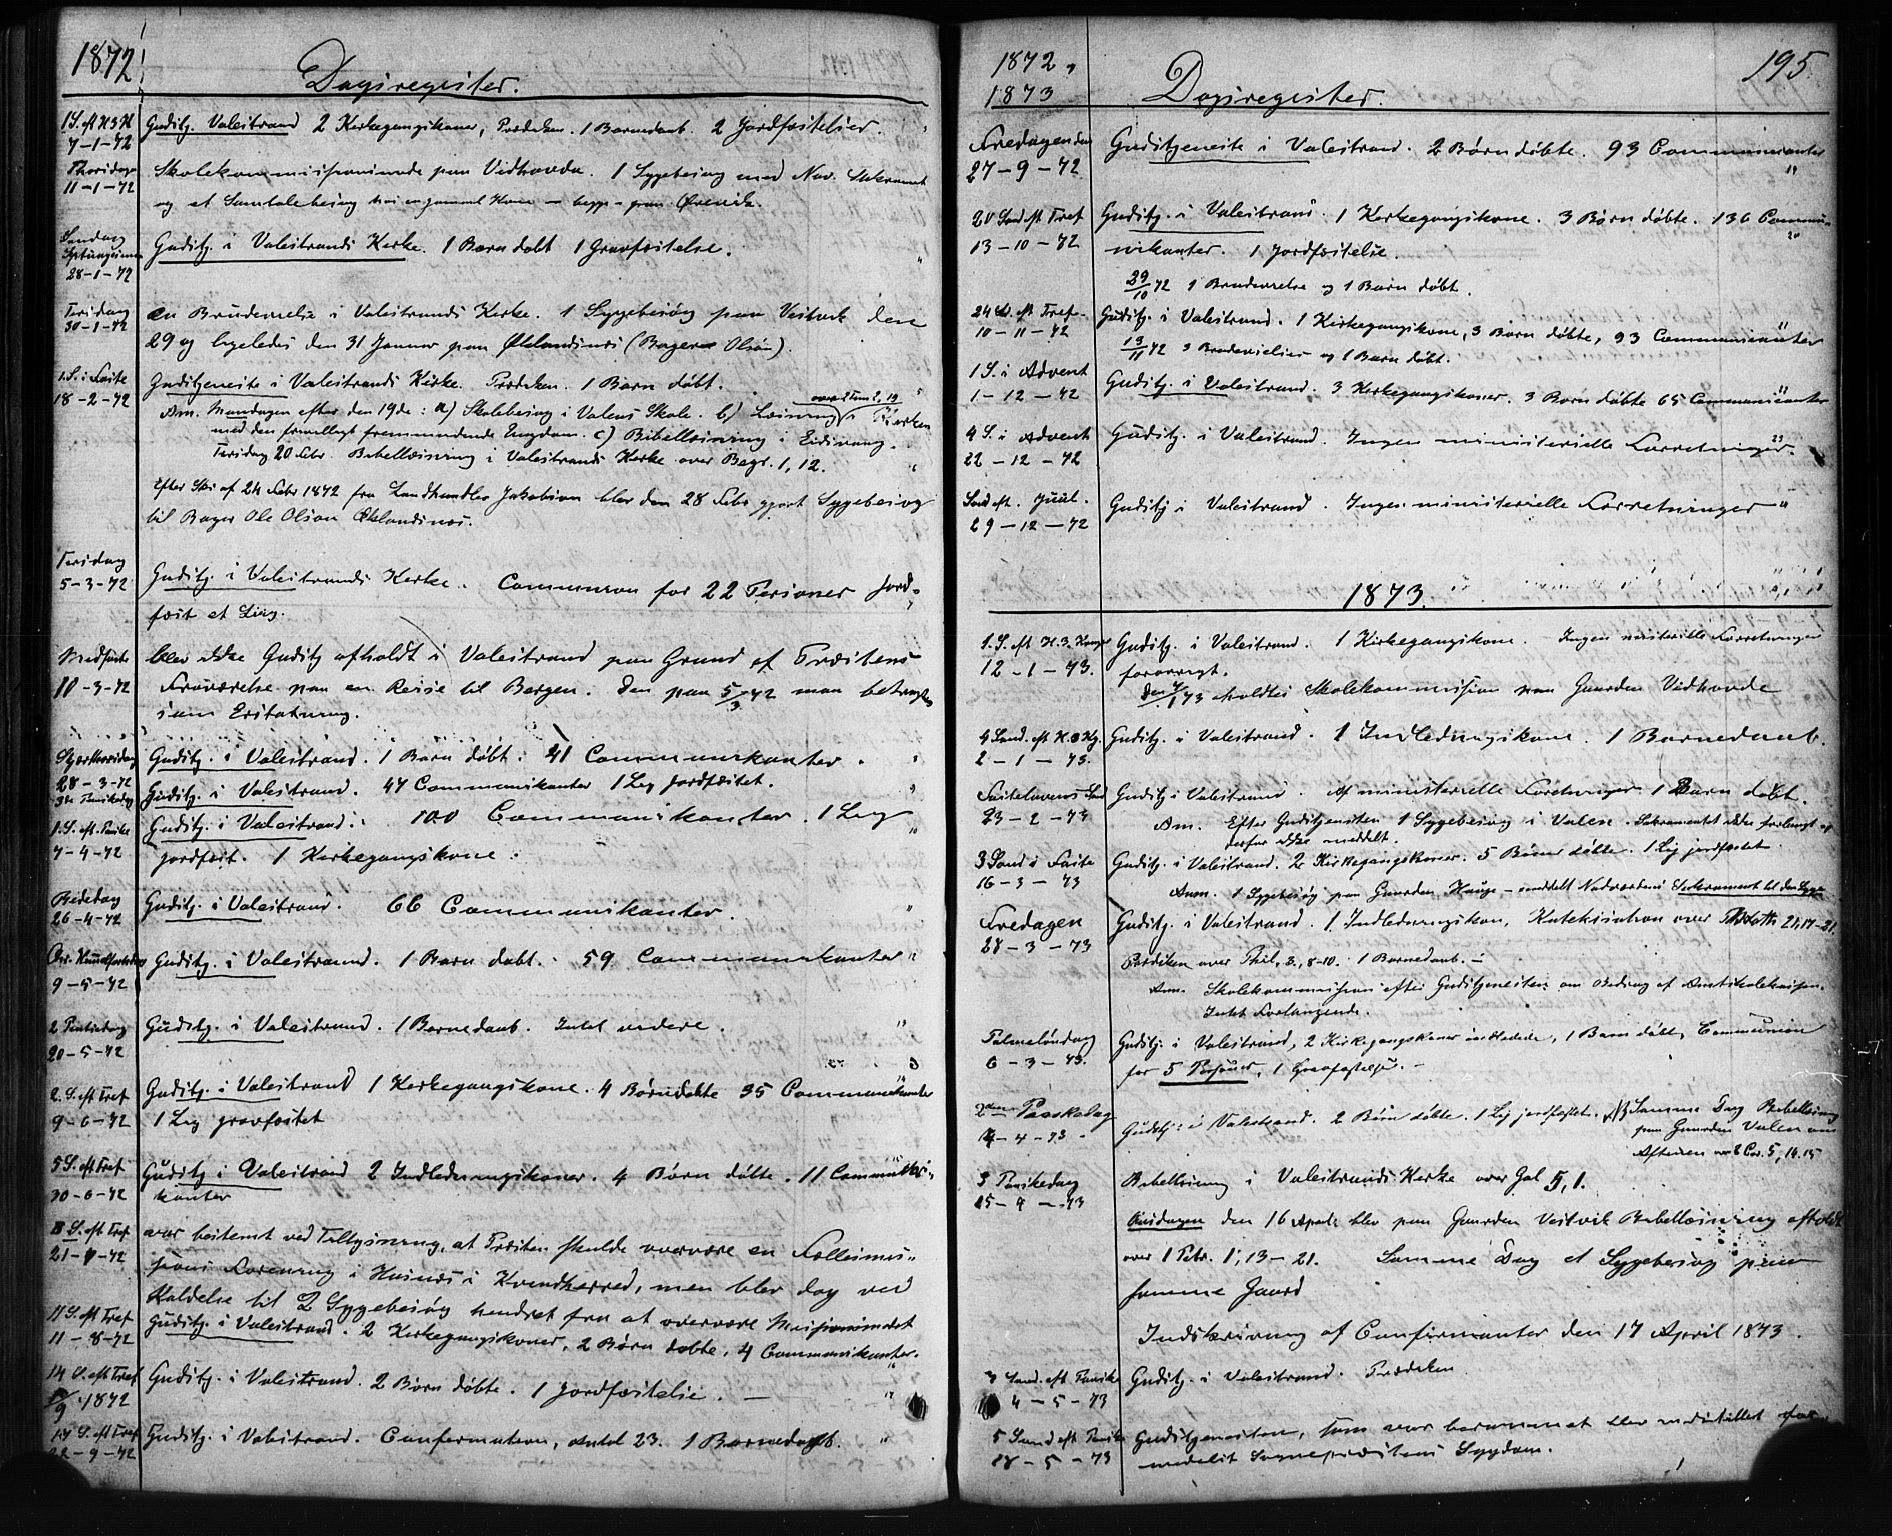 1872
Dagsregister.
1 S. eft H 3 K
7-1-72
Gudstj. Valestrand 2 Kirkegangskoner, Prædiken. 1 Barnedaab. 2 Jordfæstelser.
Thorsdag
11-1-72
Skolekommissionsmøde paa Vidhovda. 1 Sygebesøg med Nav. Sakrament
og et Samtalebesøg hos en gammel Kone – begge paa
Søndag
Septuagesima
28-1-72
Gudstj. i Valestrands Kirke. 1 Barn døbt 1 Gravfæstelse.
Tirsdag
30-1-72
en Brudevielse i Valestrands Kirke. 1 Sygebesøg paa Vestvik den
29 og ligeledes den 31 Januar paa Øklandsnes (Bager Olson).
1. S. i Faste
18-2-72
Gudstjeneste i Valestrands Kirke. Prædiken. 1 Barn døbt.
Am. Mandagen efter den 19de: a) Skolebesøg i Valens Skole. b) Læsning i Kirken
med den frivilligt fremmødende Ungdom. c) Bibellæsning i Eidsvaag.
Tirsdag 20 Febr. Bibellæsning i Valestrands Kirke over Bagr. 1, 12.
Efter Skr. af 24 Febr 1872 fra Landhandler Jakobson blev den 28 Febr gjort Sygebesøg
til Bager Ole Olson Øklandsnes.
Tirsdag
5-3-72
Gudstj. i Valestrands Kirke. Communion for 22 Personer Jord-
fæst et Liig.
Midfaste
10-3-72
blev ikke Gudstj afholdt i Valestrand paa Grund af Præstens
Fraværelse paa en Reise til Bergen. Den paa 5/3 72 maa betragtes
som Erstatning.
Skjærthorsdag
28-3-72
Gudstj. i Valestrand. 1 Barn døbt. 41 Communikanter.
3die Paaskedag
Gudstj. i Valestrand. 47 Communikanter 1 Lig jordfæstet.
1. S. eft. Paaske
7-4-72
Gudstj. i Valestrand. 100 Communikanter. 1 Liig
jordfæst. 1 Kirkegangskone.
Bededag
26-4-72
Gudstj. i Valestrand. 66 Communikanter.
Chr. Himmelfartsdag
9-5-72
Gudstj. i Valestrand. 1 Barn døbt. 59 Communikanter
2 Pintsedag
20-5-72
Gudstj. i Valestrand. 1 Barnedaab. Intet videre.
2. S. eft Tref
9-6-72
Gudstj. i Valestrand 1 Kirkegangskone. 4 Børn døbte 35 Communikanter
1 Lig gravfæstet
5 S. eft Tref
30-6-72
Gudstj. i Valestrand 2 Indledningskoner. 4 Børn døbte. 11 Communi-
kanter
8 S. eft Tref
21-7-72
var bestemt ved Tillysning, at Præsten skulde overvære en Fællesmis-
sions Forening i Husnes i Kvindherred, men blev dog ved
Kaldelse til 2 Sygebesøg hindret fra at overvære Missionsmødet
11 S. eft Tref
11-8-72
Gudstj. i Valestrand. 2 Kirkegangskoner, 2 Børn døbte, 4 Communikanter.
14 S. eft Tref
1/9 1872
Gudstj. i Valestrand. 2 Børn døbte. 1 Jordfæstelse. —
17 S. eft Tref
22-9-72
Gudstj. i Valestrand. Confirmation, Antal 23. 1 Barnedaab.
1872,
1873
Dagsregister.
195
Fredagen den
27-9-72
Gudstjeneste i Valestrand. 2 Børn døbte. 93 Communikanter
20 Sønd eft Tref
13-10-72
Gudstj. i Valestrand. 1 Kirkegangskone. 3 Børn døbte. 136 Commu-
nikanter. 1 Jordfæstelse.
29/10 72 1 Brudevielse og 1 Barn døbt.
24 S. eft Tref.
10-11-72
Gudstj. i Valestrand. 1 Kirkegangskone, 3 Børn døbte, 93 Communikanter
13/11 72 3 Brudevielser og 1 Barn døbt.
1 S. i Advent
1-12-72
Gudstj. i Valestrand. 3 Kirkegangskoner. 3 Børn døbte 65 Communikanter
4 S. i Advent
22-12-72
Gudstj. i Valestrand. Ingen ministerielle Forretninger.
Sønd eft. Juul.
29-12-72
Gudstj i Valestrand. Ingen ministerielle Forretninger
1873.
1. S. eft H. 3. Konger
12-1-73.
Gudstj. i Valestrand. 1 Kirkegangskone. Ingen ministerielle Forretninger
forøvrigt.
Den 7/1 73 holdtes Skolekommission paa Gaarden Vidhovde
4 Sønd. eft H. 3 Kg.
2-1-73.
Gudstj. i Valestrand. 1 Indledningskone. 1 Barnedaab.
Fastelavens Sønd
23-2-73
Gudstj i Valestrand. Af ministerielle Forretninger 1 Barn døbt.
Am. Efter Gudstjenesten 1 Sygebesøg i Valen. Sakramentet ikke forlangt og
derfor ikke meddelt.
3 Sønd i Faste
16-3-73
Gudstj. i Valestrand. 2 Kirkegangskoner. 5 Børn døbte. 1 Lig jordfæstet.
Anm. 1 Sygebesøg paa Gaarden Hauge – meddelt Nadverdens Sakrament til den Syge
Fredagen
28-3-73
Gudstj. i Valestrand. 1 Indledningskon. Katekisation over Matth 21, 17-21.
Prædiken over Phil. 3, 8-10. 1 Barnedaab. –
Am. Skolekommission efter Gudstjenesten om Bidrag af Amtsskolekassen.
Intet Forlangende.
Palmesøndag
6-3-73.
Gudstj. i Valestrand, 2 Kirkegangskoner indledede, 1 Barn døbt, Communion
for 5 Personer, 1 Gravfæstelse. –
2den Paaskedag
14-4-73
Gudstj. i Valestrand. 2 Børn døbte. 1 Lig jordfæstet. Samme Dag Bibellæsning
paa Gaarden Valen om
Aftenen over 2 Cor. 5, 14. 15
3 Paaskedag
15-4-73
Bibellæsning i Valestrands Kirke over Gal 5, 1.
Onsdagen den 16 April blev paa Gaarden Vestvik Bibellæsning afholdt
over 1 Petr. 1, 13-21. Samme Dag et Sygebesøg paa
samme Gaard
Indskrivning af Confirmanter den 17 April 1873.
3 Sønd. eft Paaske
4-5-73
Gudstj. i Valestrand. Prædiken
5 Sønd eft Paaske
18-5-73
Gudstjenesten, som var berammet blev indstillet for-
medelst Sognepræstens Sygdom.